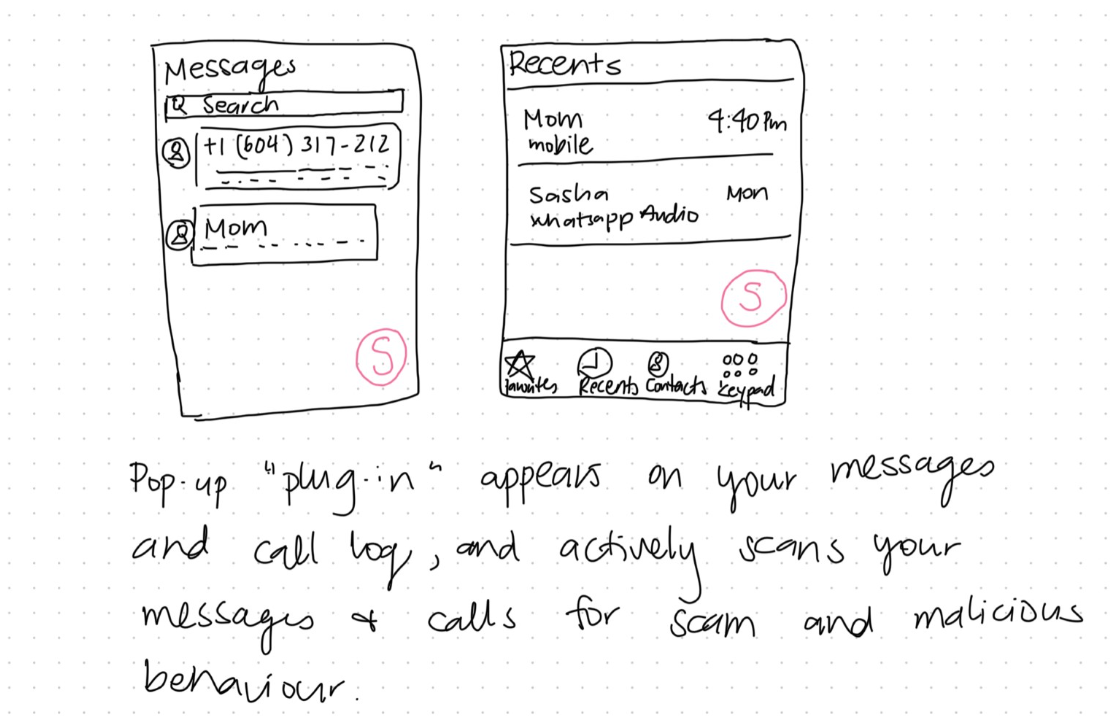 Messages
Search
+1 (604) 317-212
Mom
S
Recents
Mom 4:40 Pm
mobile
Sasha Mon
whatsapp Audio
S
favorites Recents Contacts Keypad
Pop-up "plug-in" appears on your messages
and call log, and actively scans your
messages & calls for scam and malicious
behaviour.